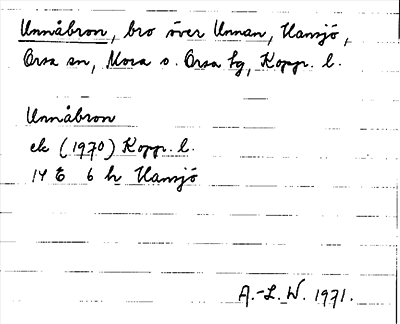 Unnåbron, bro över Unnan, Hansjö,
Orsa sn, Mora o. Orsa tg, Koppr. l.
Unnåbron
ek (1970) Koppr. l.
14 E 6 h Hansjö
A.-L. W. 1971.